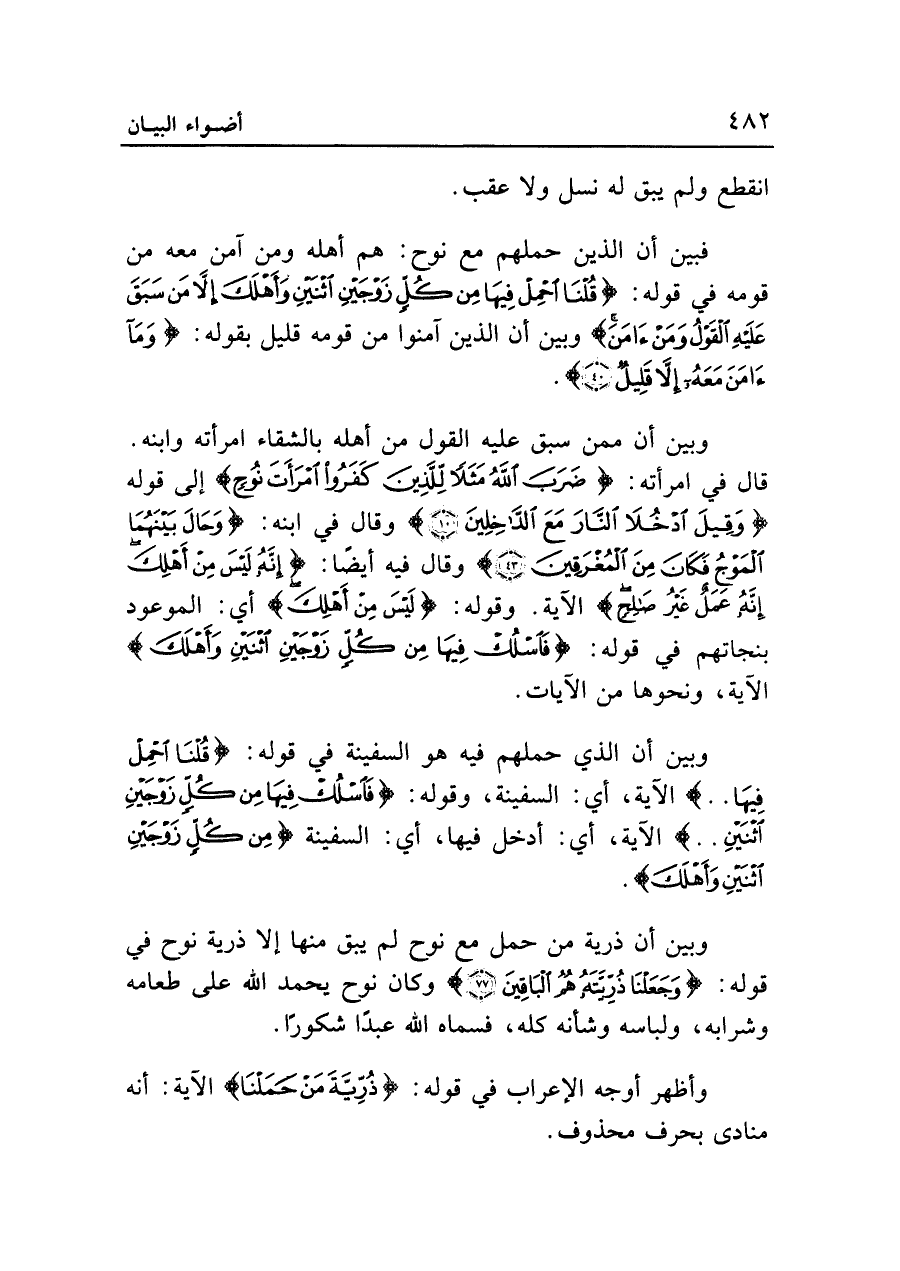 ٤٨٢ أضواء البيان
انقطع ولم يبق له نسل ولا عقب.
فبين أن الذين حملهم مع نوح: هم أهله ومن آمن معه من
قومه في قوله: ﴿قُلْنَا ٱحْمِلْ فِيهَا مِن كُلٍّ زَوْجَيْنِ ٱثْنَيْنِ وَأَهْلَكَ إِلَّا مَن سَبَقَ
عَلَيْهِ ٱلْقَوْلُ وَمَنْ ءَامَنَۚ﴾ وبين أن الذين آمنوا من قومه قليل بقوله: ﴿وَمَآ
ءَامَنَ مَعَهُۥٓ إِلَّا قَلِيلٌ ٤٠﴾.
وبين أن ممن سبق عليه القول من أهله بالشقاء امرأته وابنه.
قال في امرأته: ﴿ضَرَبَ ٱللَّهُ مَثَلًا لِّلَّذِينَ كَفَرُوا۟ ٱمْرَأَتَ نُوحٍ﴾ إلى قوله
﴿وَقِيلَ ٱدْخُلَا ٱلنَّارَ مَعَ ٱلدَّٰخِلِينَ ١٠﴾ وقال في ابنه: ﴿وَحَالَ بَيْنَهُمَا
ٱلْمَوْجُ فَكَانَ مِنَ ٱلْمُغْرَقِينَ ٤٣﴾ وقال فيه أيضًا: ﴿إِنَّهُۥ لَيْسَ مِنْ أَهْلِكَۖ
إِنَّهُۥ عَمَلٌ غَيْرُ صَٰلِحٍۖ﴾ الآية. وقوله: ﴿لَيْسَ مِنْ أَهْلِكَۖ﴾ أي: الموعود
بنجاتهم في قوله: ﴿فَٱسْلُكْ فِيهَا مِن كُلٍّ زَوْجَيْنِ ٱثْنَيْنِ وَأَهْلَكَ﴾
الآية، ونحوها من الآيات.
وبين أن الذي حملهم فيه هو السفينة في قوله: ﴿قُلْنَا ٱحْمِلْ
فِيهَا..﴾ الآية، أي: السفينة، وقوله: ﴿فَٱسْلُكْ فِيهَا مِن كُلٍّ زَوْجَيْنِ
ٱثْنَيْنِ..﴾ الآية، أي: أدخل فيها، أي: السفينة ﴿مِن كُلٍّ زَوْجَيْنِ
ٱثْنَيْنِ وَأَهْلَكَ﴾.
وبين أن ذرية من حمل مع نوح لم يبق منها إلا ذرية نوح في
قوله: ﴿وَجَعَلْنَا ذُرِّيَّتَهُۥ هُمُ ٱلْبَاقِينَ ٧٧﴾ وكان نوح يحمد الله على طعامه
وشرابه، ولباسه وشأنه كله، فسماه الله عبدًا شكورًا.
وأظهر أوجه الإعراب في قوله: ﴿ذُرِّيَّةَ مَنْ حَمَلْنَا﴾ الآية: أنه
منادى بحرف محذوف.